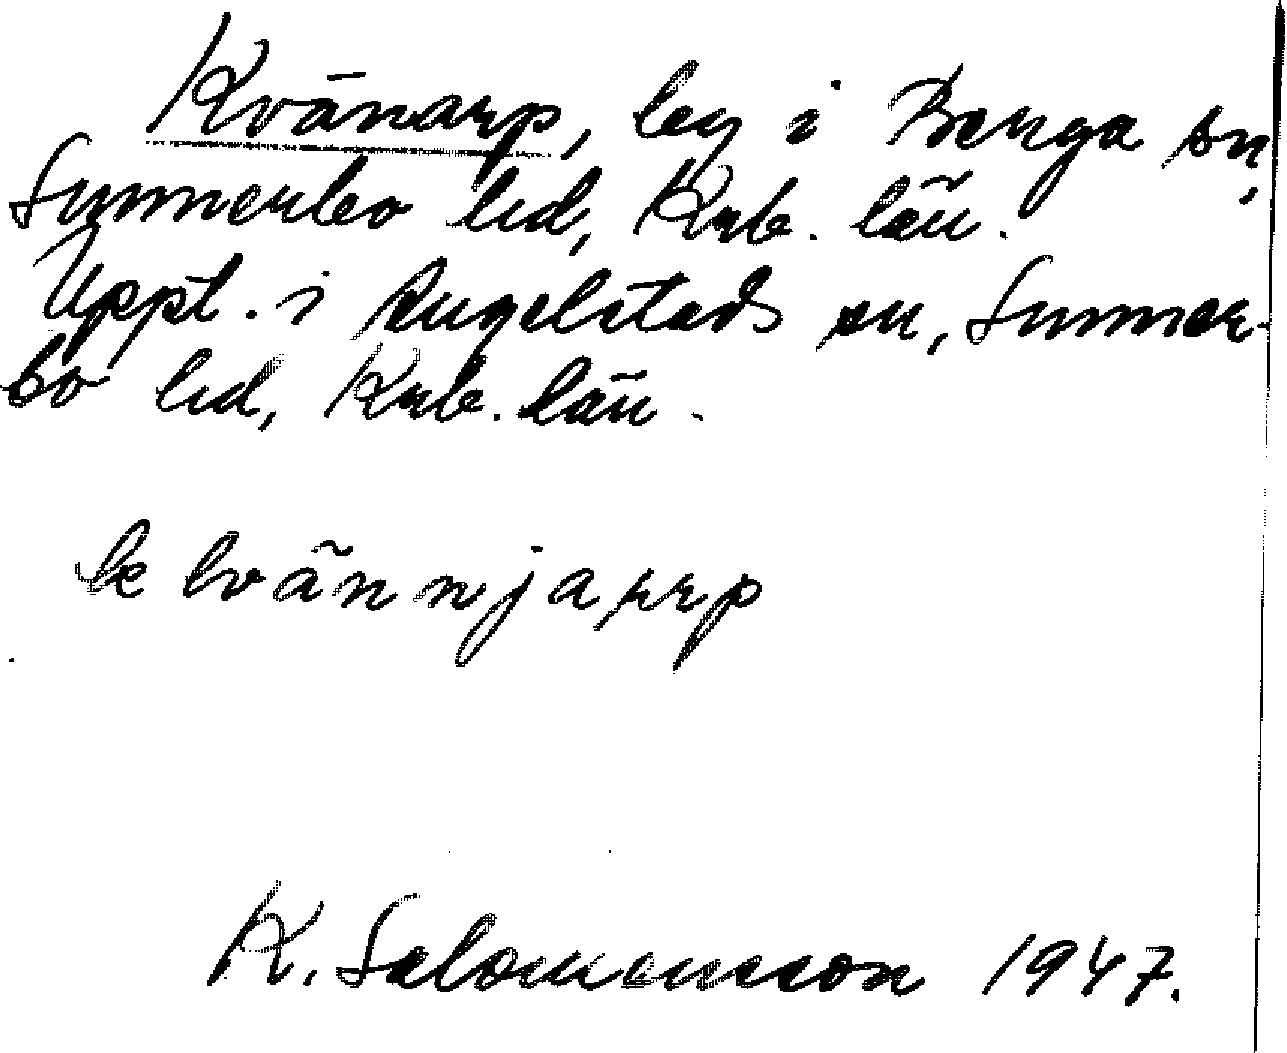 Kvänarp, by i Berga sn,
Sunnerbo hd, Krb. län.
Uppt. i Angelstads sn, Sunner-
bo hd, Krb. län.
k kvännjarrp
K. Salomonsson 1947.